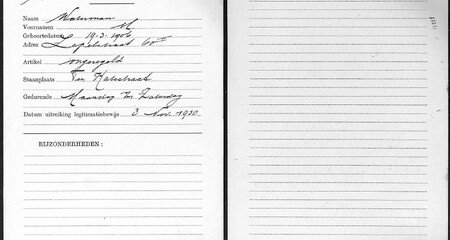 Naam Waterman
Voornamen M
Geboortedatum 19-3-1906
Adres Lepelstraat 60
Artikel ongeregeld
Staanplaats Ten Katestraat
Gedurende Maandag t/m Zaterdag
Datum uitreiking legitimatiebewijs 3 Nov. 1930.
BIJZONDERHEDEN: